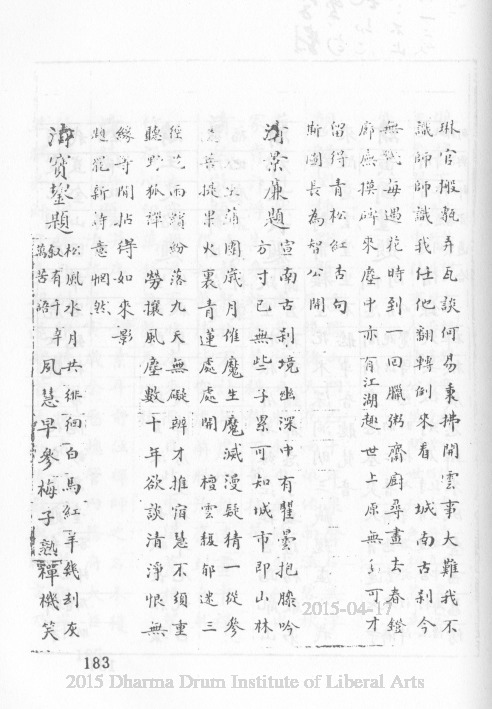 琳官搬甎弄瓦談何易裹拂開雲事大難我不
識師師識我仕他翻轉倒來看 城南古刹今
無 每過花時到一回臘粥齋廚尋畫去春鐙
廊廡摸碑來塵中亦有江湖趣世上原無 可才
留得青松紅杏句
斷圖長為智公開
清景廉題 宣南古刹境幽深中有瞿曇抱膝吟
方寸已無些子累可知城市即山林
蒲團歲月催魔生魔滅漫疑猜一從參
菩提果火裏青蓮處處開 檀雲馥郁遶三
徑花雨繽紛落九天無礙辨才推宿慧不須重
聽野狐禪 勞讓風塵數十年欲談清淨恨無
緣等閒拈得如來影
題罷新詩意惘然
寶鋆題 松風水月共徘徊白馬紅羊幾刦灰
敘有千年
萬苦語 夙慧早參梅子熟禪機笑
2015-04-17
183
2015 Dharma Drum Institute of Liberal Arts